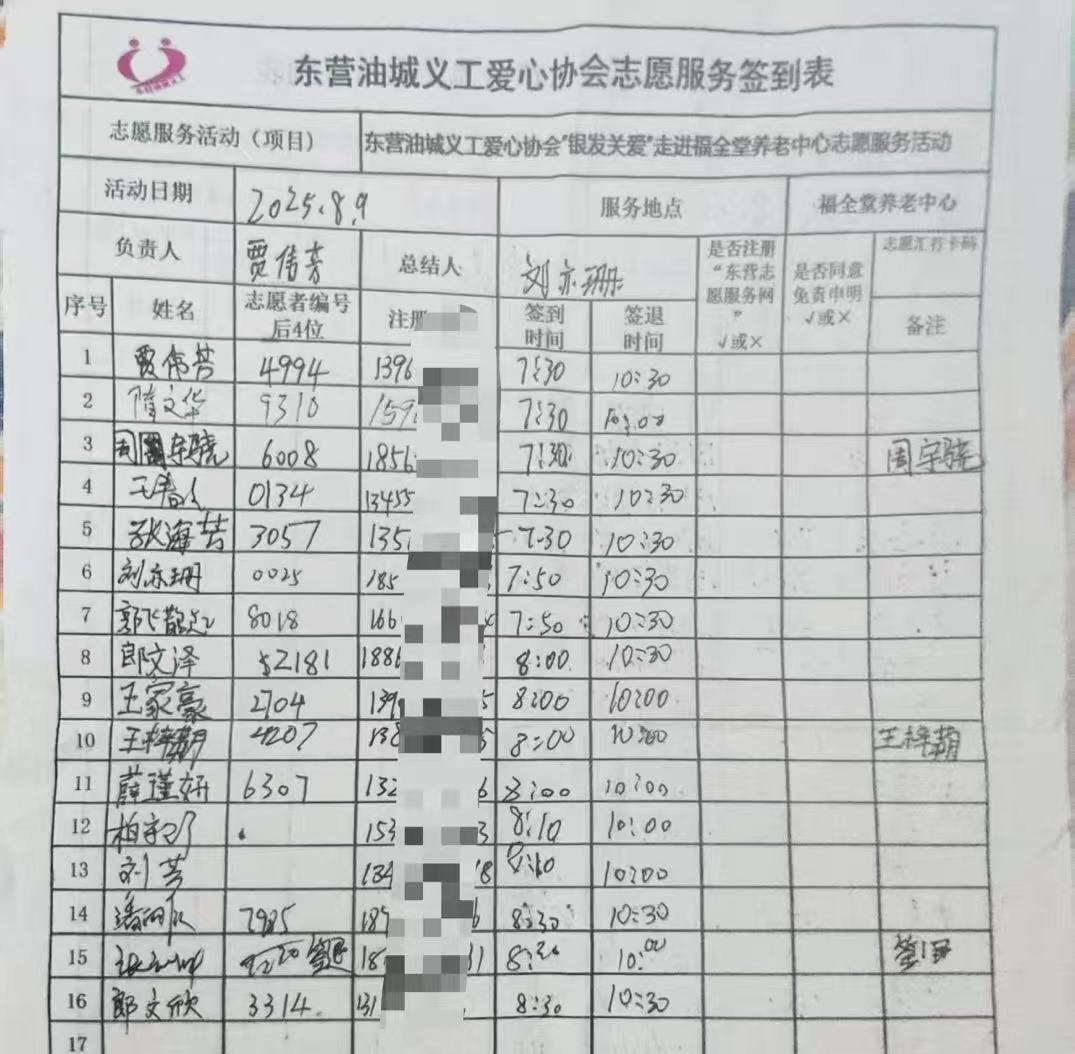 东营油城义工
东营油城义工爱心协会志愿服务签到表
志愿服务活动（项目） 东营油城义工爱心协会"银发关爱"走进福全堂养老中心志愿服务活动
活动日期 2025.8.9 服务地点 福全堂养老中心
负责人 贾伟芳 总结人 刘亦珊 是否注册“东营志愿服务网”√或× 是否同意免责申明√或× 志愿汇打卡码
序号 姓名 志愿者编号后4位 注册 签到时间 签退时间 备注
1 贾伟芳 4994 1396 7:30 10:30
2 隋文华 9310 159 7:30 10:00
3 周宇骁 6008 1856 7:30 10:30 周宇骁
4 0134 13455 7:30 10:30
5 张海芸 3057 135 7:30 10:30
6 刘亦珊 0025 185 7:50 10:30
7 郭 8018 166 7:50 10:30
8 郎文泽 52181 1886 8:00 10:30
9 王家豪 2704 139 5 8:00 10:00
10 王梓萌 4207 138 8:00 10:00 王梓萌
11 薛瑾妍 6307 132 6 8:00 10:00
12 柏 153 3 8:10 10:00
13 刘芳 134 8 8:10 10:00
14 潘 7985 8:30 10:30
15 18 1 10:00
16 郎文欣 3314 131 8:30 10:30
17